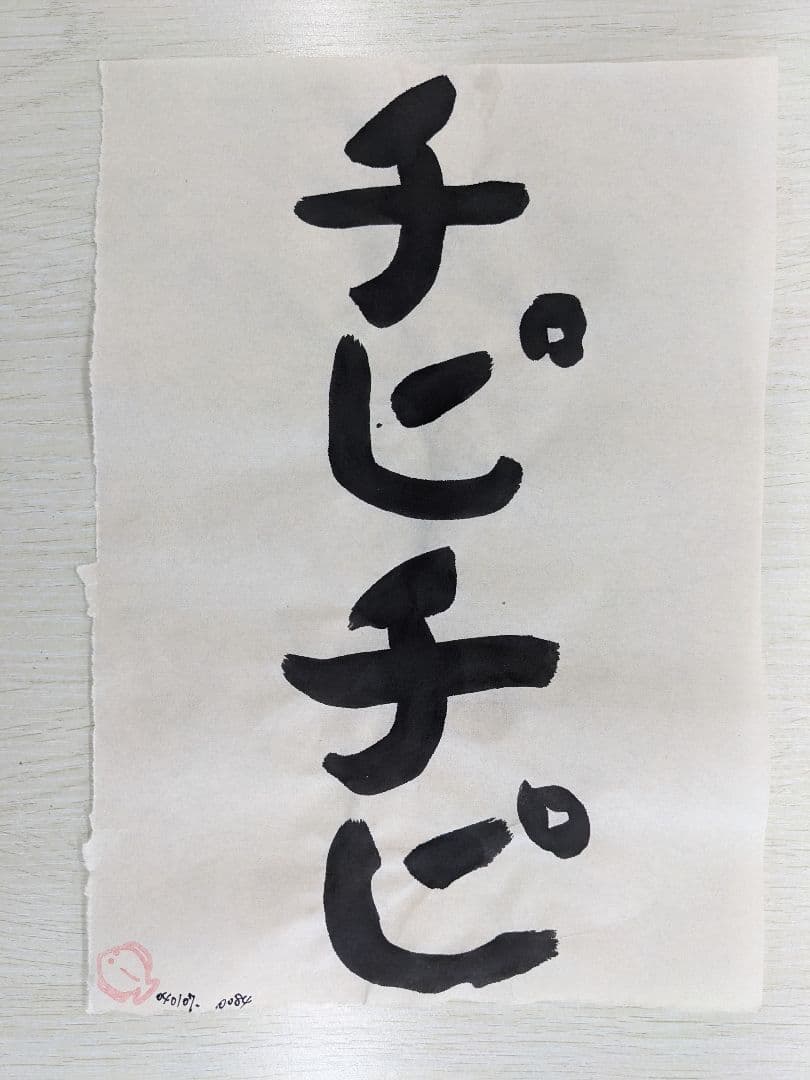 チピチピ
040107. .0084